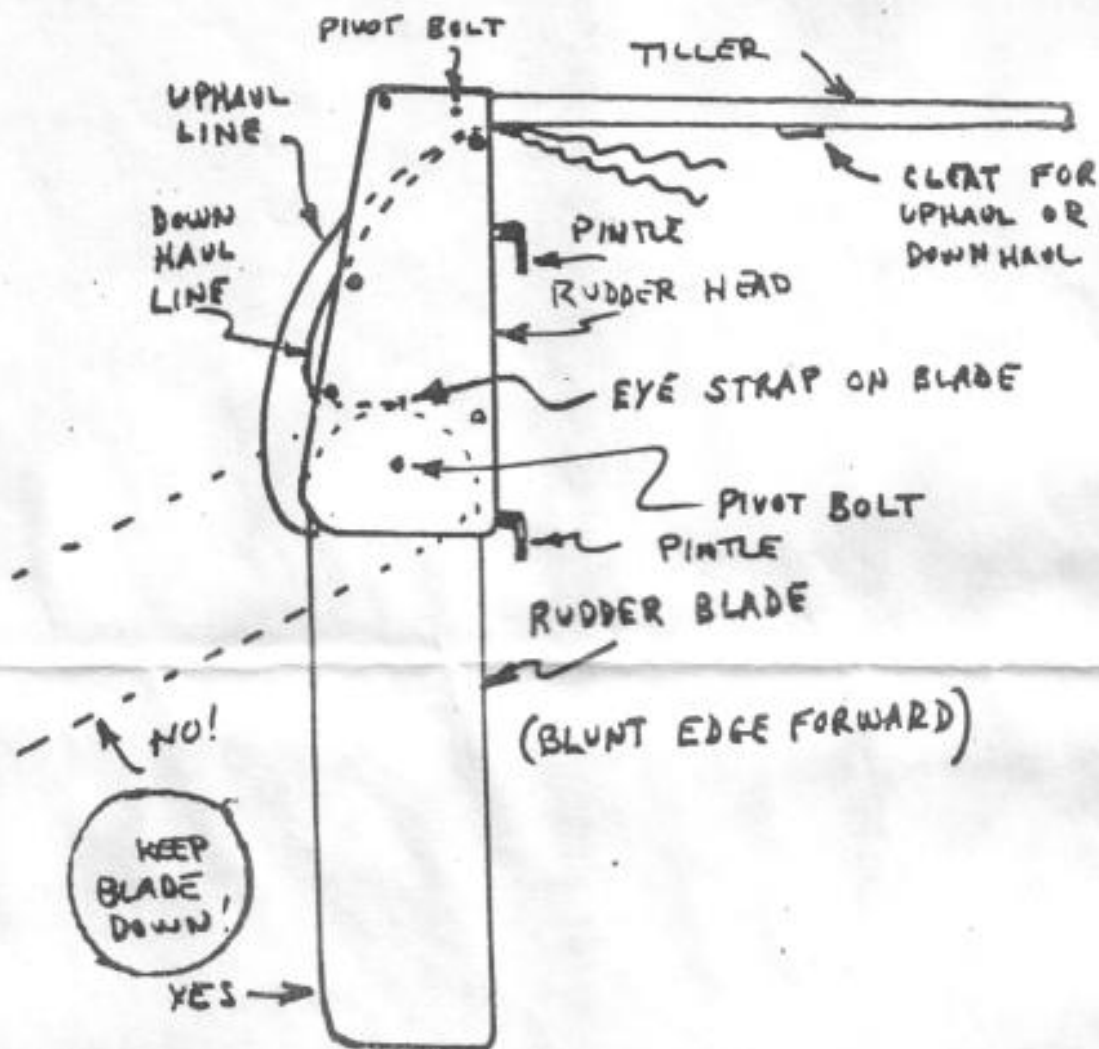 PIVOT BOLT
TILLER
UPHAUL
LINE
DOWN
HAUL
LINE
CLEAT FOR
UPHAUL OR
DOWNHAUL
PINTLE
RUDDER HEAD
EYE STRAP ON BLADE
PIVOT BOLT
PINTLE
RUDDER BLADE
(BLUNT EDGE FORWARD)
NO!
KEEP
BLADE
DOWN!
YES